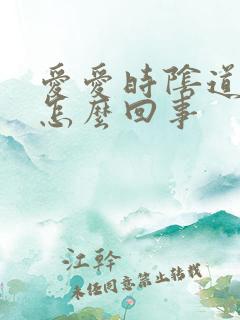 愛愛時陰道
怎麼回事
江幹
未經同意禁止轉載